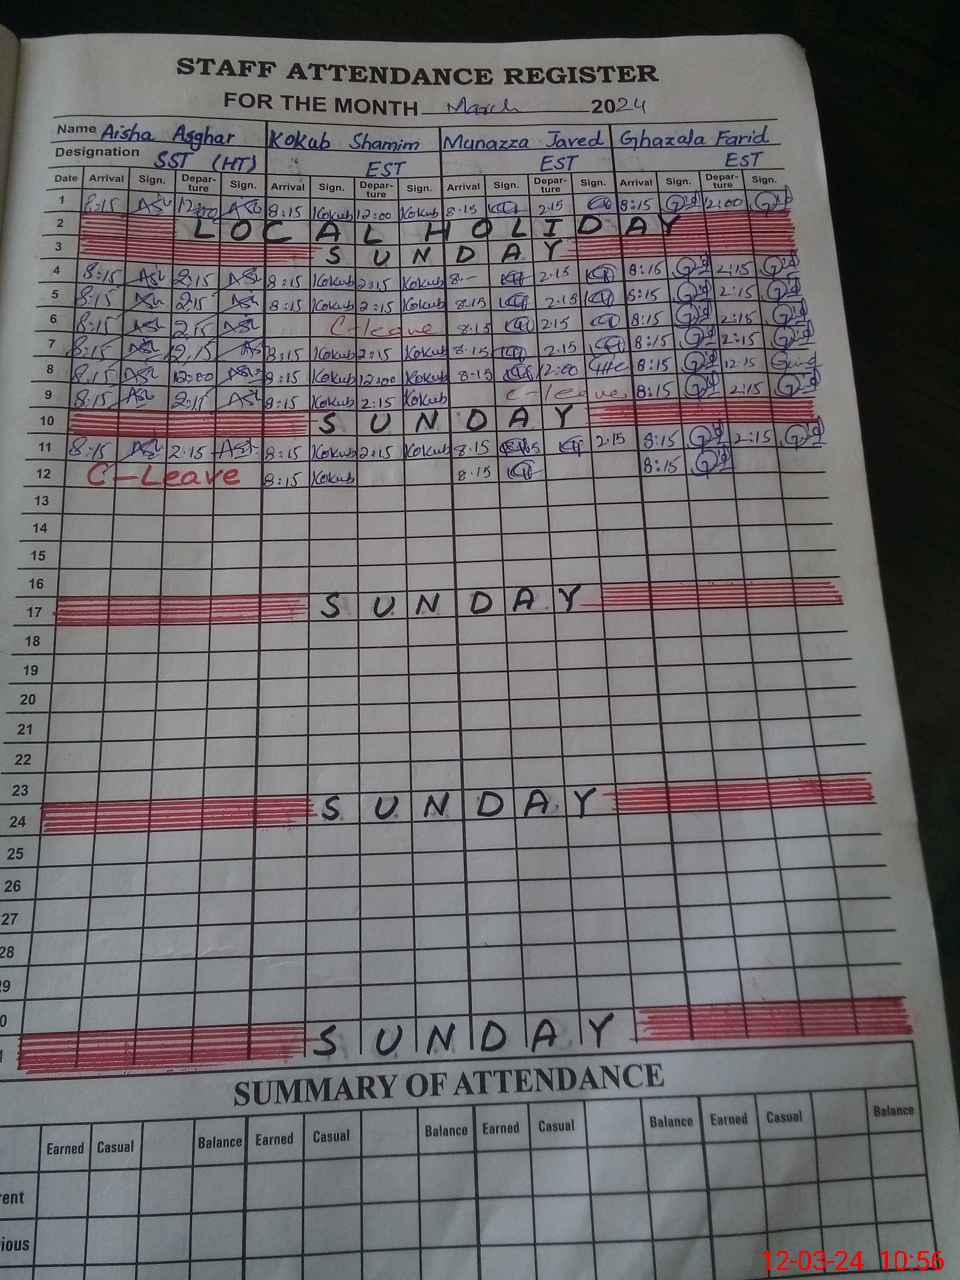 STAFF ATTENDANCE REGISTER
FOR THE MONTH March 2024
Name Aisha Asghar Kokub Shamim Munazza Javed Ghazala Farid
Designation SST (HT) EST EST EST
Date Arrival Sign. Depar-ture Sign. Arrival Sign. Depar-ture Sign. Arrival Sign. Depar-ture Sign. Arrival Sign. Depar-ture Sign.
1 8:15 12:00 8:15 Kokub 12:00 Kokub 8.15 2.15 8:15 12:00
2 LOCAL HOLIDAY
3 SUNDAY
4 8:15 2:15 8:15 Kokub 2:15 Kokub 8- 2.15 8:15 2:15
5 8:15 2:15 8:15 Kokub 2:15 Kokub 8.15 2.15 8:15 2:15
6 8:15 2:15 C-leave 8.15 2.15 8:15 2:15
7 8:15 2.15 8:15 Kokub 2:15 Kokub 8.15 2.15 8:15 2:15
8 8.15 12:00 8:15 Kokub 12:00 Kokub 8.15 12:00 8:15 12:15
9 8:15 2:15 8:15 Kokub 2:15 Kokub C-leave 8:15 2:15
10 SUNDAY
11 8:15 2.15 8:15 Kokub 2:15 Kokub 8.15 2.15 8:15 2:15
12 C-Leave 8:15 Kokub 8.15 8:15
13
14
15
16
17 SUNDAY
18
19
20
21
22
23
24 SUNDAY
25
26
27
28
9
0
SUNDAY
SUMMARY OF ATTENDANCE
Earned Casual Balance Earned Casual Balance Earned Casual Balance Earned Casual Balance
rent
ious
12-03-24 10:56